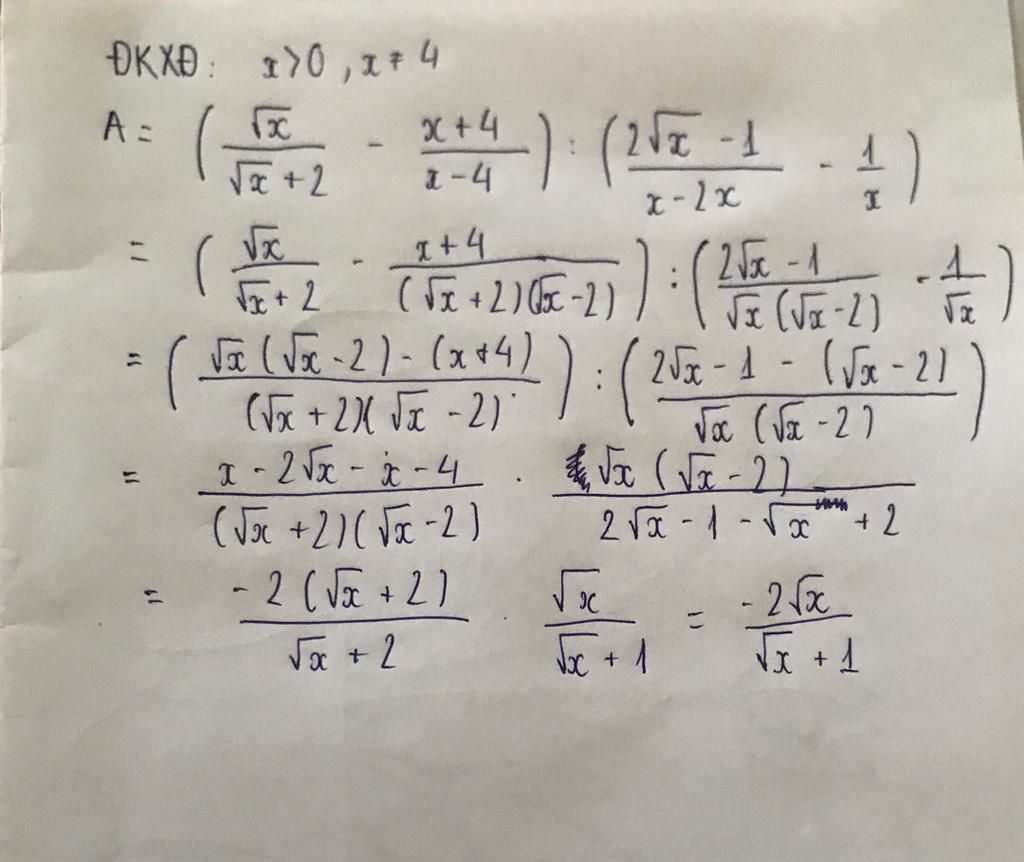 ĐKXĐ: x>0, x≠4
A = (√x/(√x+2) - (x+4)/(x-4)) : ((2√x-1)/(x-2x) - 1/x)
= (√x/(√x+2) - (x+4)/((√x+2)(√x-2))) : ((2√x-1)/(√x(√x-2)) - 1/√x)
= ((√x(√x-2)-(x+4))/((√x+2)(√x-2))) : ((2√x-1-(√x-2))/(√x(√x-2)))
= (x-2√x-x-4)/((√x+2)(√x-2)) · (√x(√x-2))/(2√x-1-√x+2)
= (-2(√x+2))/(√x+2) · √x/(√x+1) = (-2√x)/(√x+1)